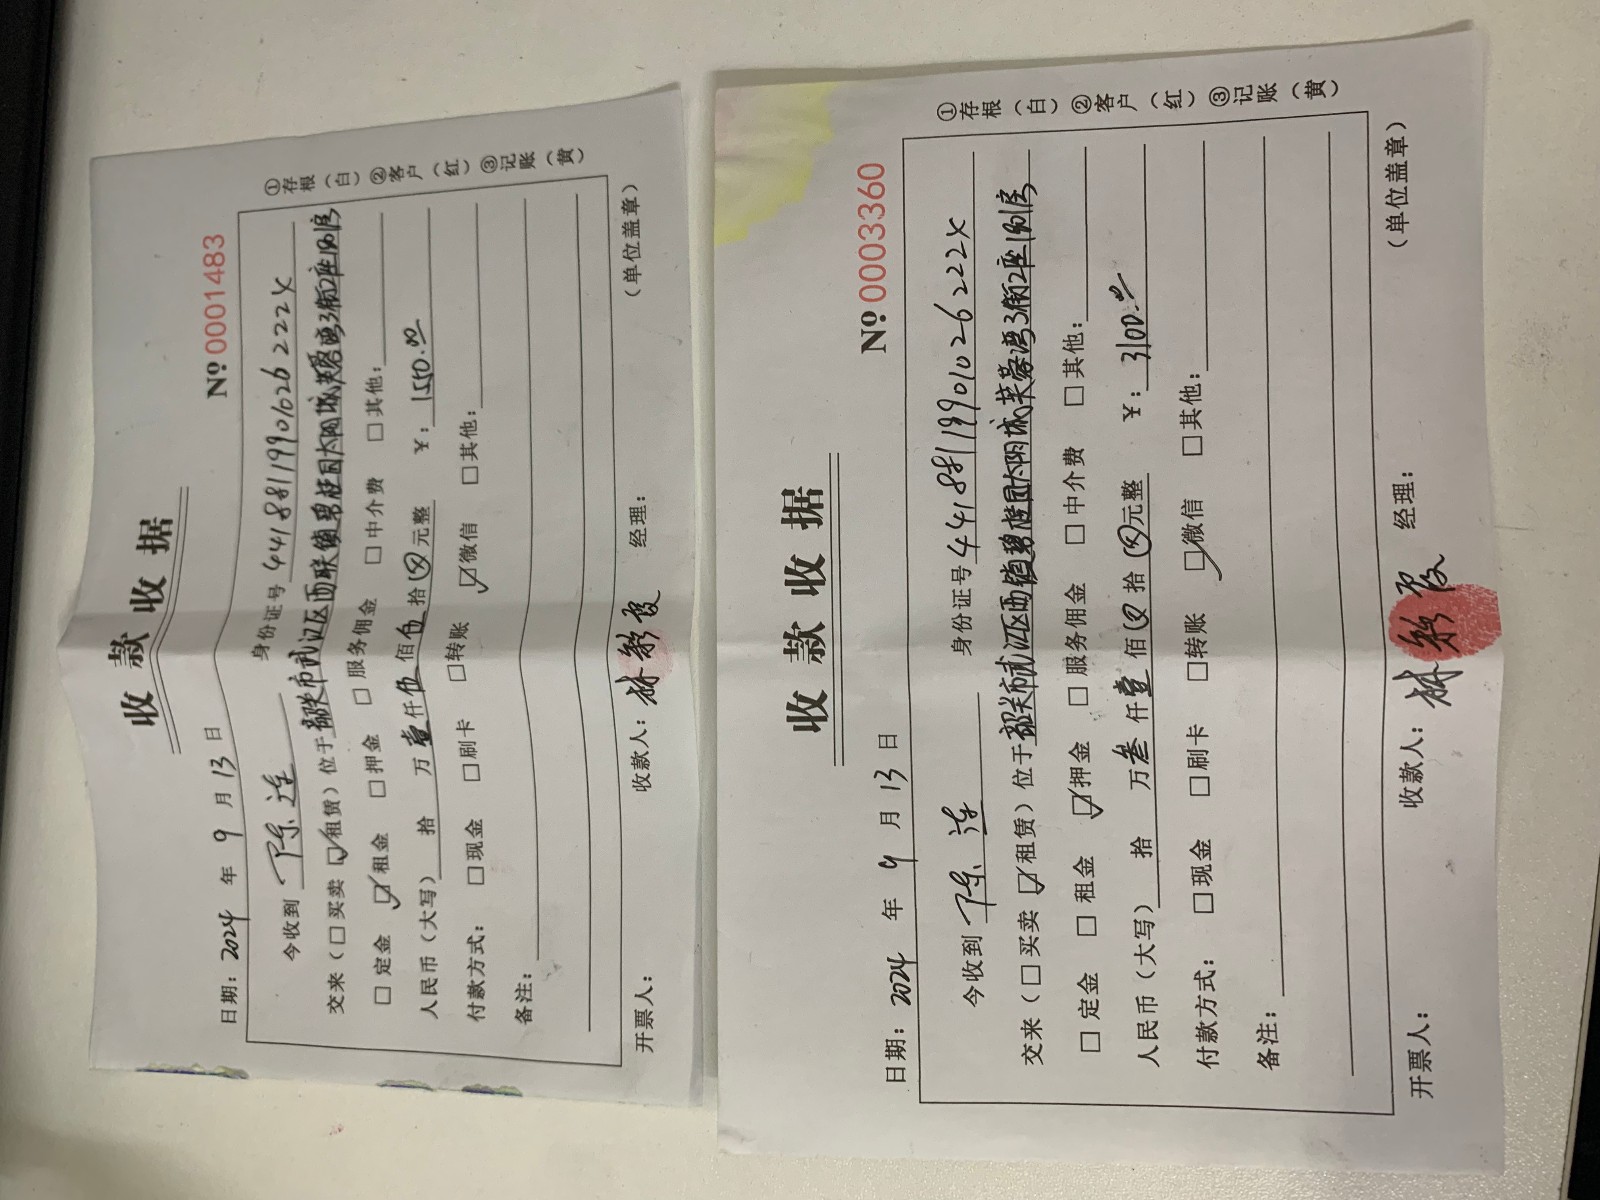 收款收据
№ 0001483
日期：2024 年 9 月 13 日
今收到 陈连 身份证号 44188119901026222X
交来（□买卖 ☑租赁）位于韶关市武江区西联镇碧桂园太阳城芙蓉湾3街2座1801房
□定金 ☑租金 □押金 □服务佣金 □中介费 □其他：
人民币（大写） 拾 万壹仟伍佰伍拾⊗元整 ¥：1550.00
付款方式： □现金 □刷卡 □转账 ☑微信 □其他：
备注：
开票人： 收款人：林彩霞 经理： （单位盖章）
①存根（白）②客户（红）③记账（黄）
收款收据
№ 0003360
日期：2024 年 9 月 13 日
今收到 陈连 身份证号 44188119901026222X
交来（□买卖 ☑租赁）位于韶关市武江区西镇碧桂园太阳城芙蓉湾3街2座1801房
□定金 □租金 ☑押金 □服务佣金 □中介费 □其他：
人民币（大写） 拾 万叁仟壹佰⊗拾⊗元整 ¥：3100.00
付款方式： □现金 □刷卡 □转账 ☑微信 □其他：
备注：
开票人： 收款人：林彩霞 经理： （单位盖章）
①存根（白）②客户（红）③记账（黄）